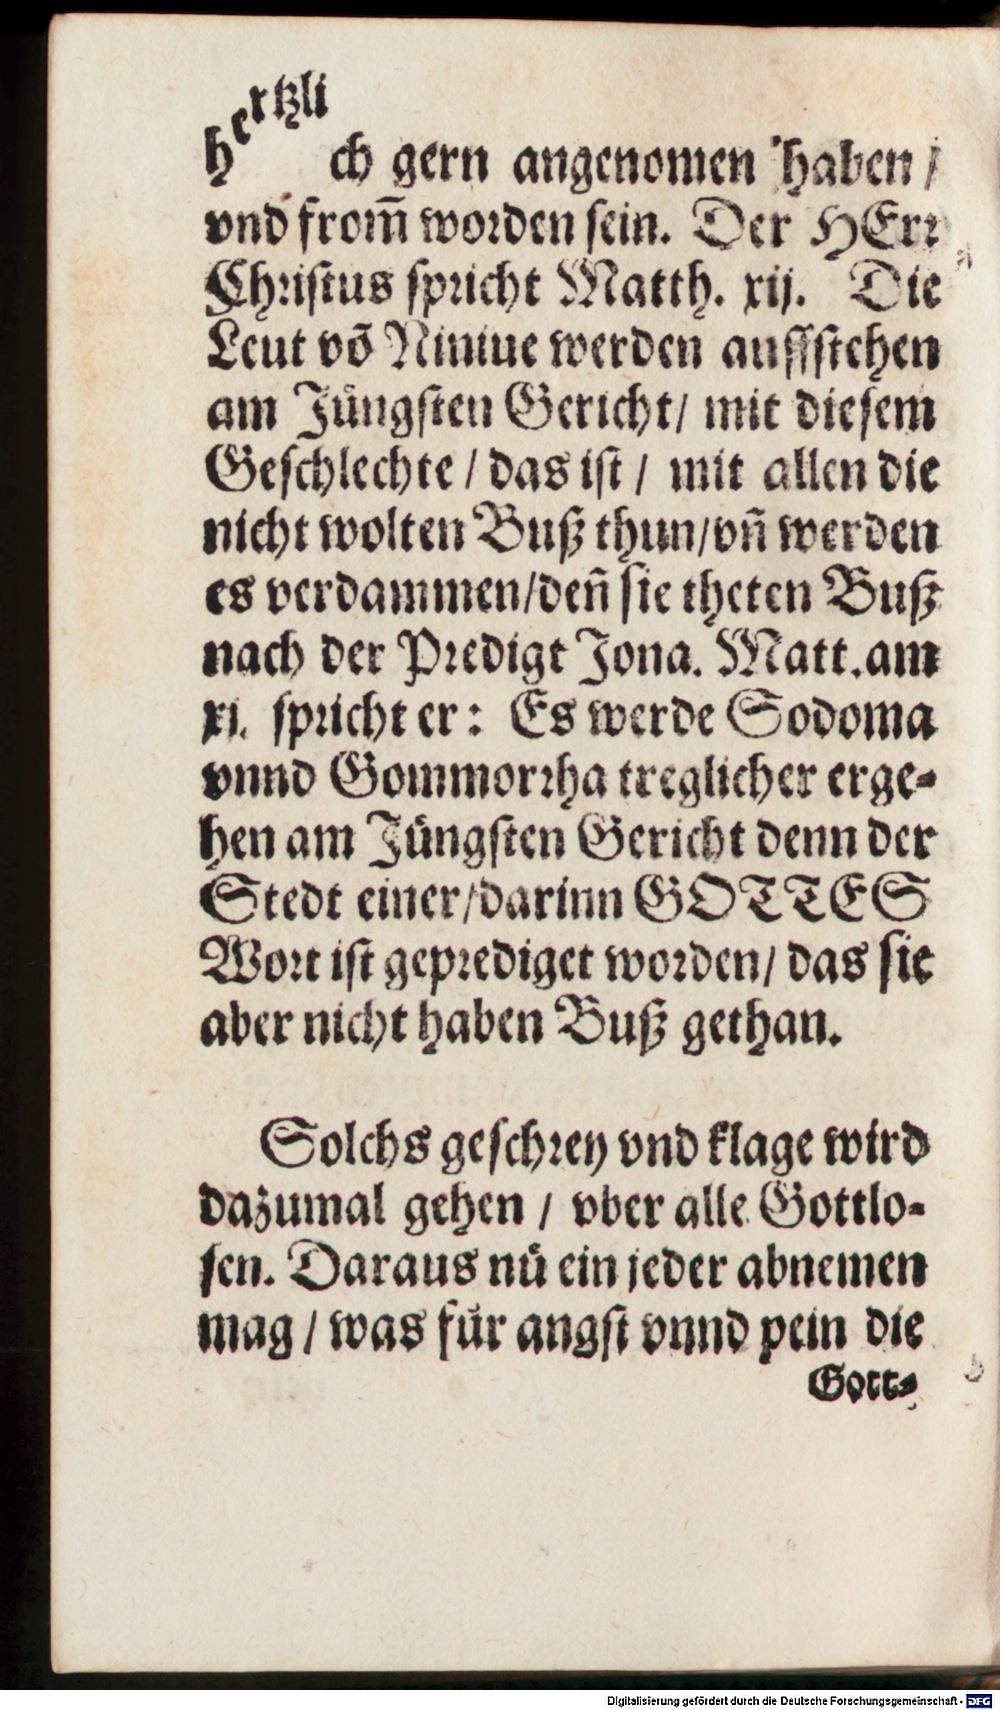 hertzlich gern angenomen haben /
vnd from̃ worden sein. Der HErr
Christus spricht Matth. xij. Die
Leut võ Niniue werden auffstehen
am Jüngsten Gericht / mit diesem
Geschlechte / das ist / mit allen die
nicht wolten Buß thun / vñ werden
es verdammen / deñ sie theten Buß
nach der Predigt Jona. Matt. am
xj. spricht er: Es werde Sodoma
vnnd Gommorrha treglicher erge-
hen am Jüngsten Gericht denn der
Stedt einer / darinn GOTTES
Wort ist geprediget worden / das sie
aber nicht haben Buß gethan.
Solchs geschrey vnd klage wird
dazumal gehen / vber alle Gottlo-
sen. Daraus nů ein jeder abnemen
mag / was für angst vnnd pein die
Gott-
Digitalisierung gefördert durch die Deutsche Forschungsgemeinschaft - DFG